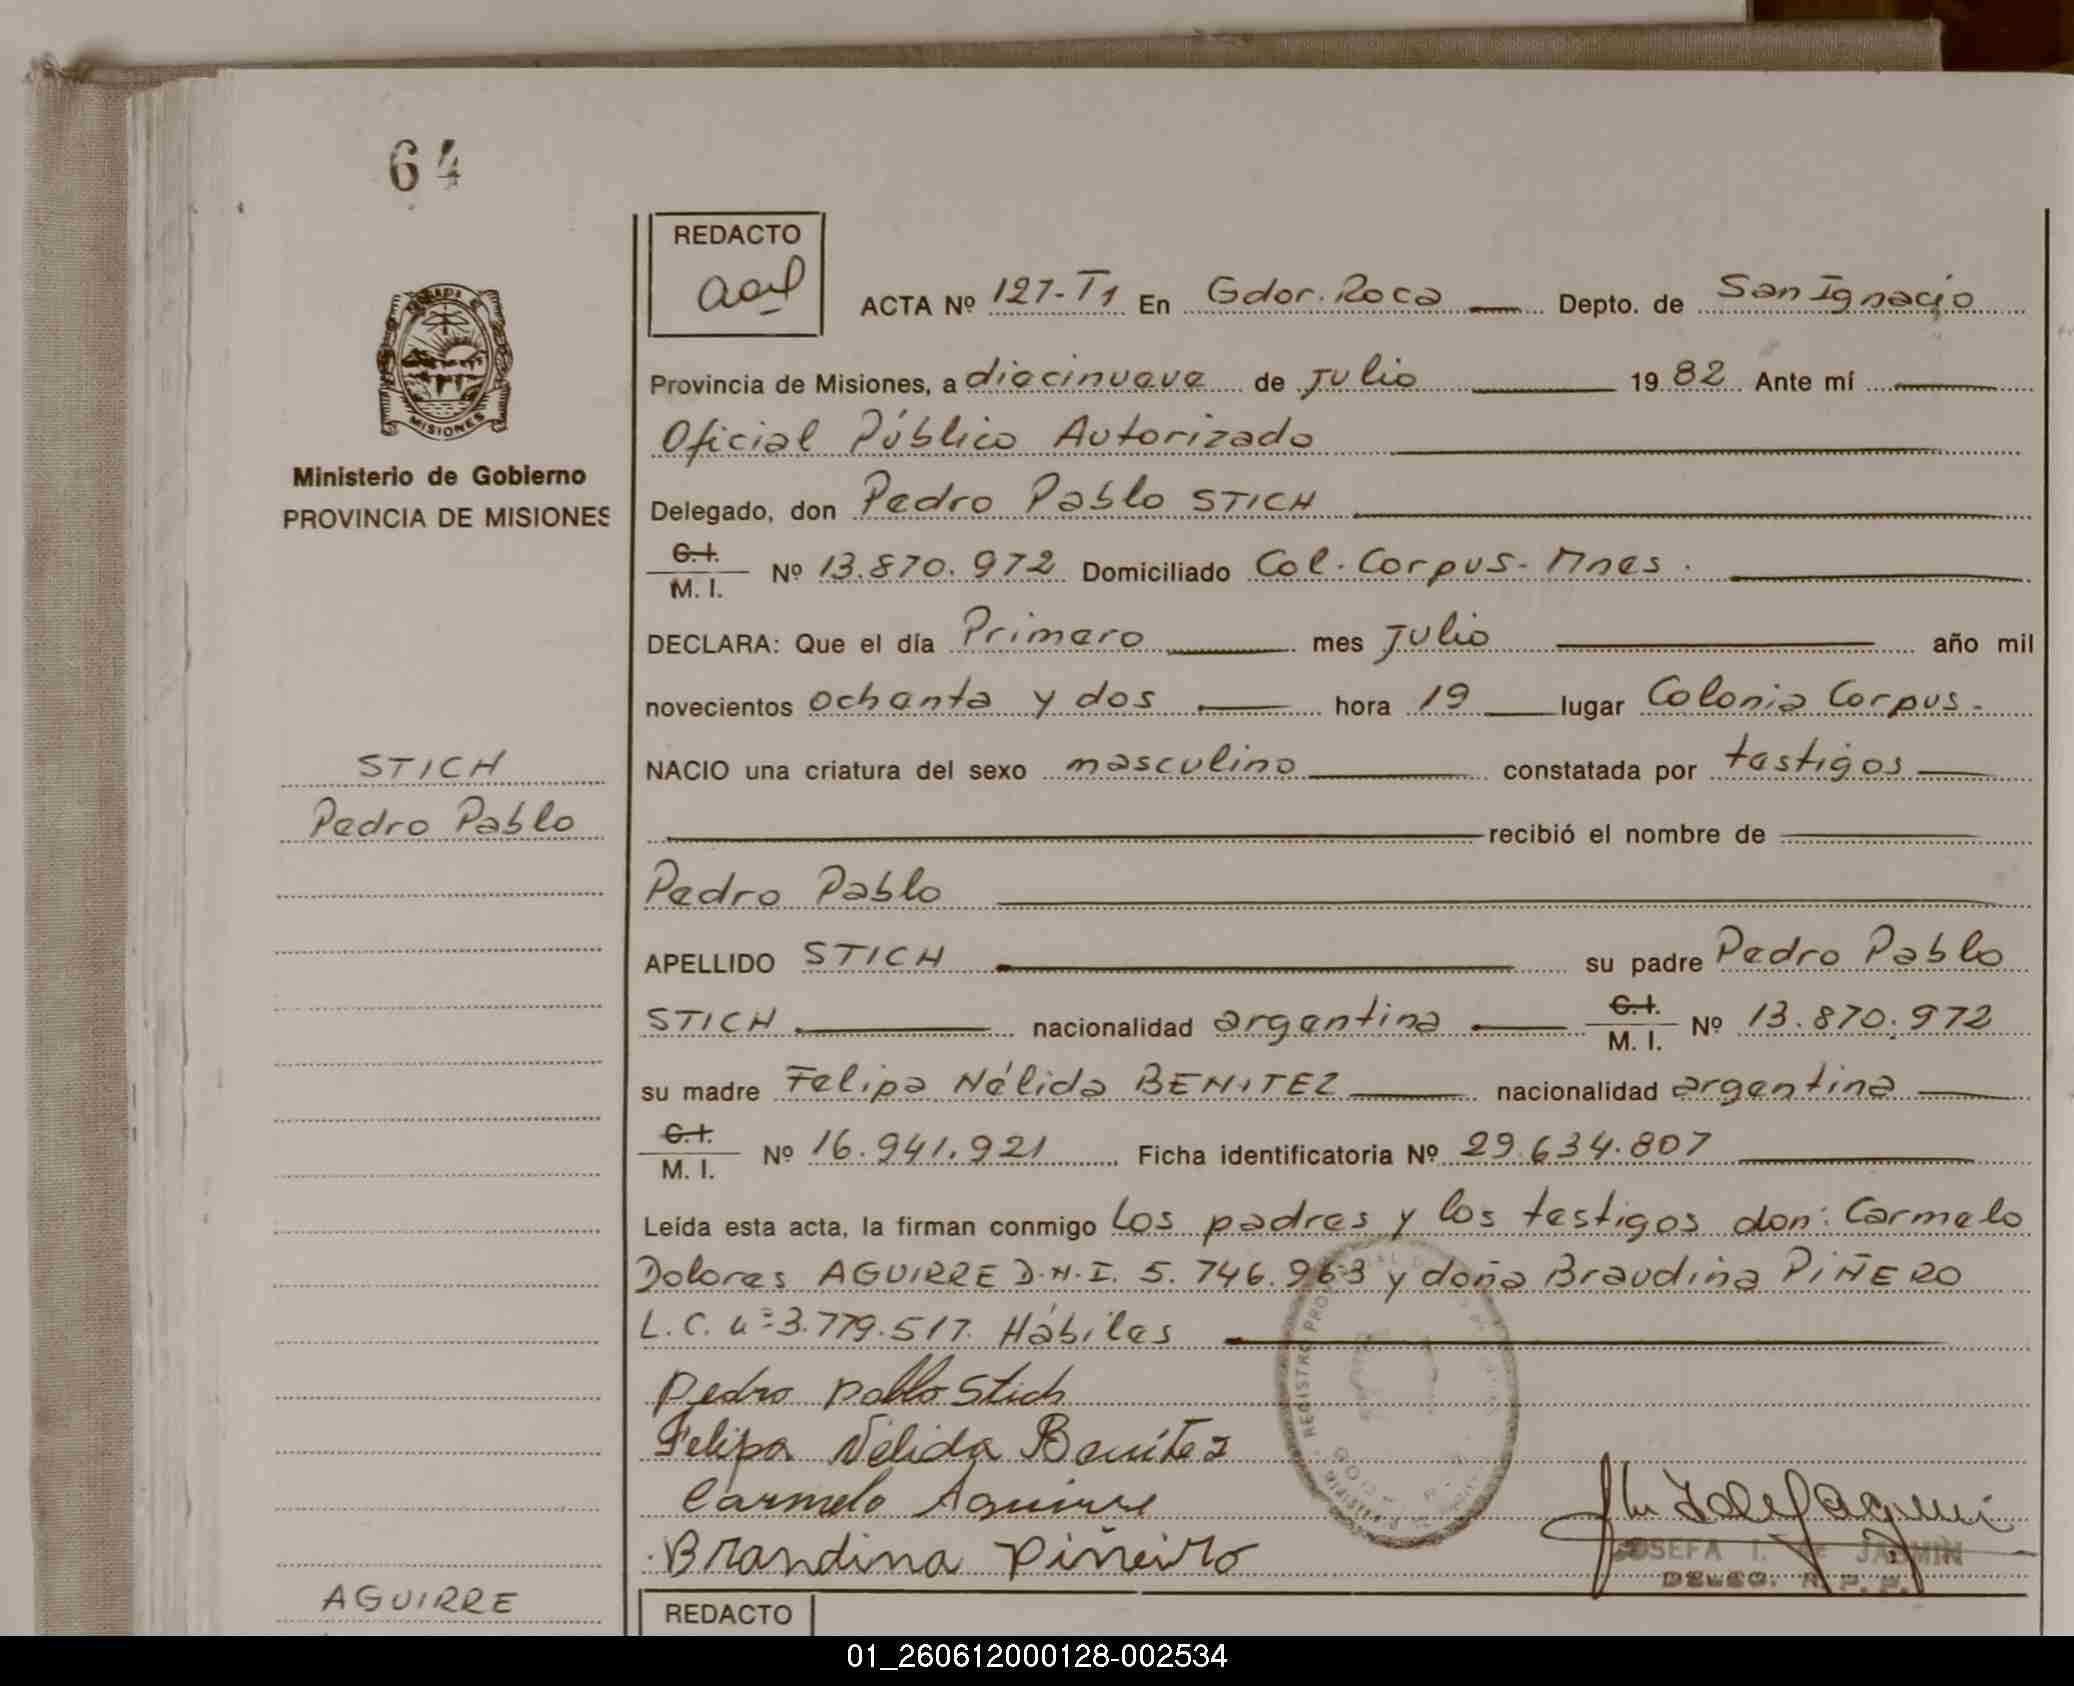 64
REDACTO
ACTA Nº 127-T1 En Gdor. Roca Depto. de San Ignacio
Provincia de Misiones, a diecinueve de Julio 1982 Ante mí
MISIONES
Oficial Público Autorizado
Ministerio de Gobierno
PROVINCIA DE MISIONES
Delegado, don Pedro Pablo STICH
C.I. M. I. Nº 13.870.972 Domiciliado Col. Corpus- Mnes.
DECLARA: Que el día Primero mes Julio año mil
novecientos ochenta y dos hora 19 lugar Colonia Corpus.
STICH
NACIO una criatura del sexo masculino constatada por testigos
Pedro Pablo
recibió el nombre de
Pedro Pablo
APELLIDO STICH su padre Pedro Pablo
STICH nacionalidad argentina C.I. M. I. Nº 13.870.972
su madre Felipa Nélida BENITEZ nacionalidad argentina
C.I. M. I. Nº 16.941.921 Ficha identificatoria Nº 29.634.807
Leída esta acta, la firman conmigo los padres y los testigos don: Carmelo
Dolores AGUIRRE D.N.I. 5.746.963 y doña Braudina PIÑERO
L.C. nº 3.779.517. Hábiles
Pedro Pablo Stich
Felipa Nélida Benítez
Carmelo Aguirre
Brandina Piñeiro
JOSEFA I. de JACMIN
DELEG. R. P. P.
AGUIRRE
REDACTO
01_260612000128-002534